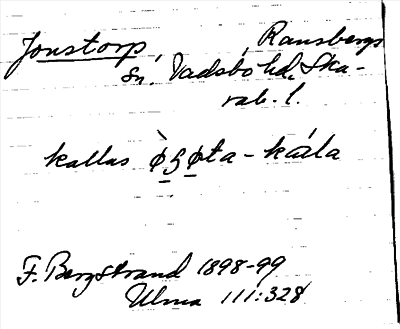 Jonstorp, Ransbergs
sn. Vadsbo hd. Ska-
rab. l.
kallas
F. Bergstrand 1898-99
Ulma 111:328